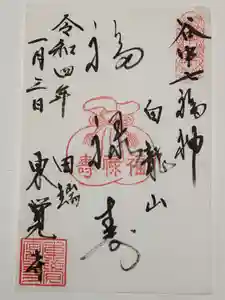 谷中七福神
白龍山
福禄寿
田端
東覚寺
令和四年
一月三日
福禄寿